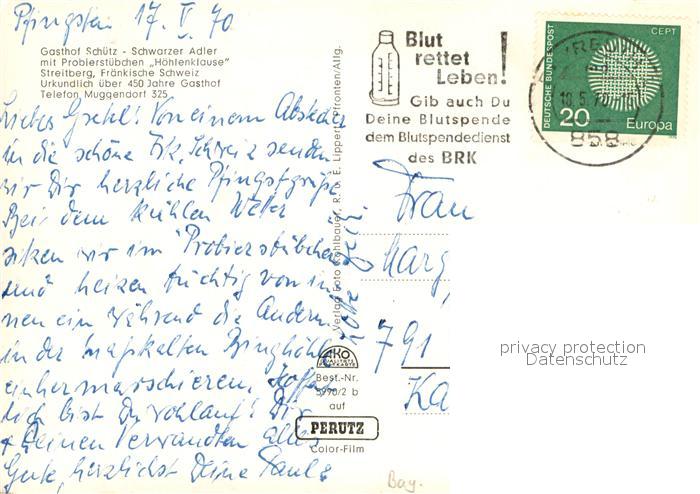 Pfingsten 17. V. 70
Gasthof Schütz - Schwarzer Adler
mit Probierstübchen „Höhlenklause"
Streitberg, Fränkische Schweiz
Urkundlich über 450 Jahre Gasthof
Telefon Muggendorf 325
Liebes Gretel! Von einem Abstecher
in die schöne Frk. Schweiz senden
wir Dir herzliche Pfingstgrüße
Bei dem kühlen Wetter
sitzen wir im "Probierstübchen"
und heizen tüchtig von in-
nen ein während die Anderen
in der naßkalten Binghöhle
einhermarschieren. Hoffent-
lich bist Du wohlauf! Dir
+ Deinen Verwandten alles
Gute, herzlichst Deine
Verlag Foto Kohlbauer, R. u. E. Lippert, Pfronten/Allg.
AKO
Best.-Nr.
5990/2 b
auf
PERUTZ
Color-Film
Blut
rettet
Leben!
Gib auch Du
Deine Blutspende
dem Blutspendedienst
des BRK
18.5.70
858
DEUTSCHE BUNDESPOST
CEPT
20 Europa
Frau
Marg
791
Ka
privacy protection
Datenschutz
Bay.